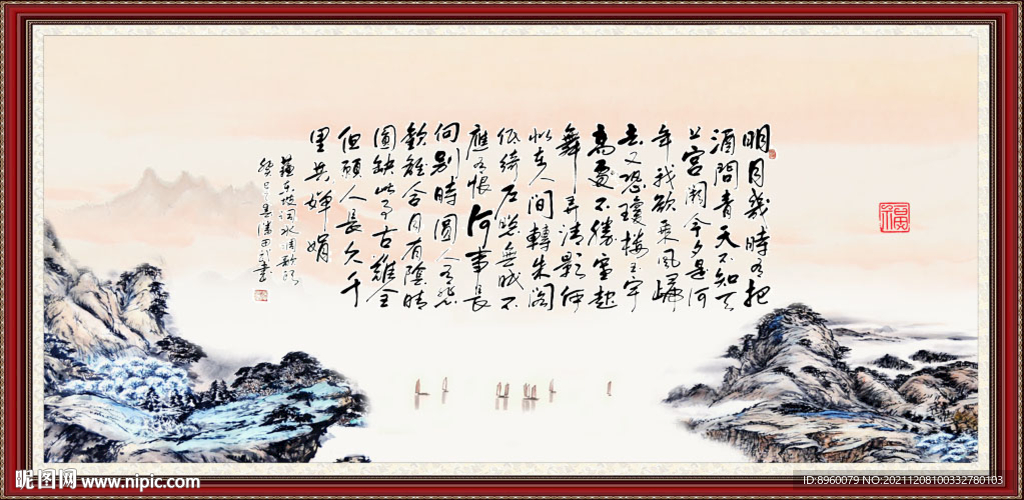 明月幾時有把
酒問青天不知天
上宮闕今夕是何
年我欲乘風歸
去又恐瓊樓玉宇
高處不勝寒起
舞弄清影何
似在人間轉朱閣
低綺戶照無眠不
應有恨何事長
向別時圓人有悲
歡離合月有陰晴
圓缺此事古難全
但願人長久千
里共嬋娟
蘇東坡詞水調歌頭
福
昵图网 www.nipic.com
ID:8960079 NO:20211208100332780103